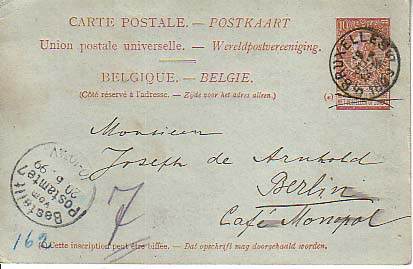 CARTE POSTALE. — POSTKAART
Union postale universelle. — Wereldpostvereeniging.
BELGIQUE. — BELGIE.
(Côté réservé à l'adresse. — Zijde voor het adres alleen.)
10
BRUXELLES
Monsieur
Joseph de Arnhold
Berlin
Café Monopol
Bestellt
vom
Postamte 7
20 6 99
7
162
Cette inscription peut être biffée. — Dat opschrift mag doorschaald worden.